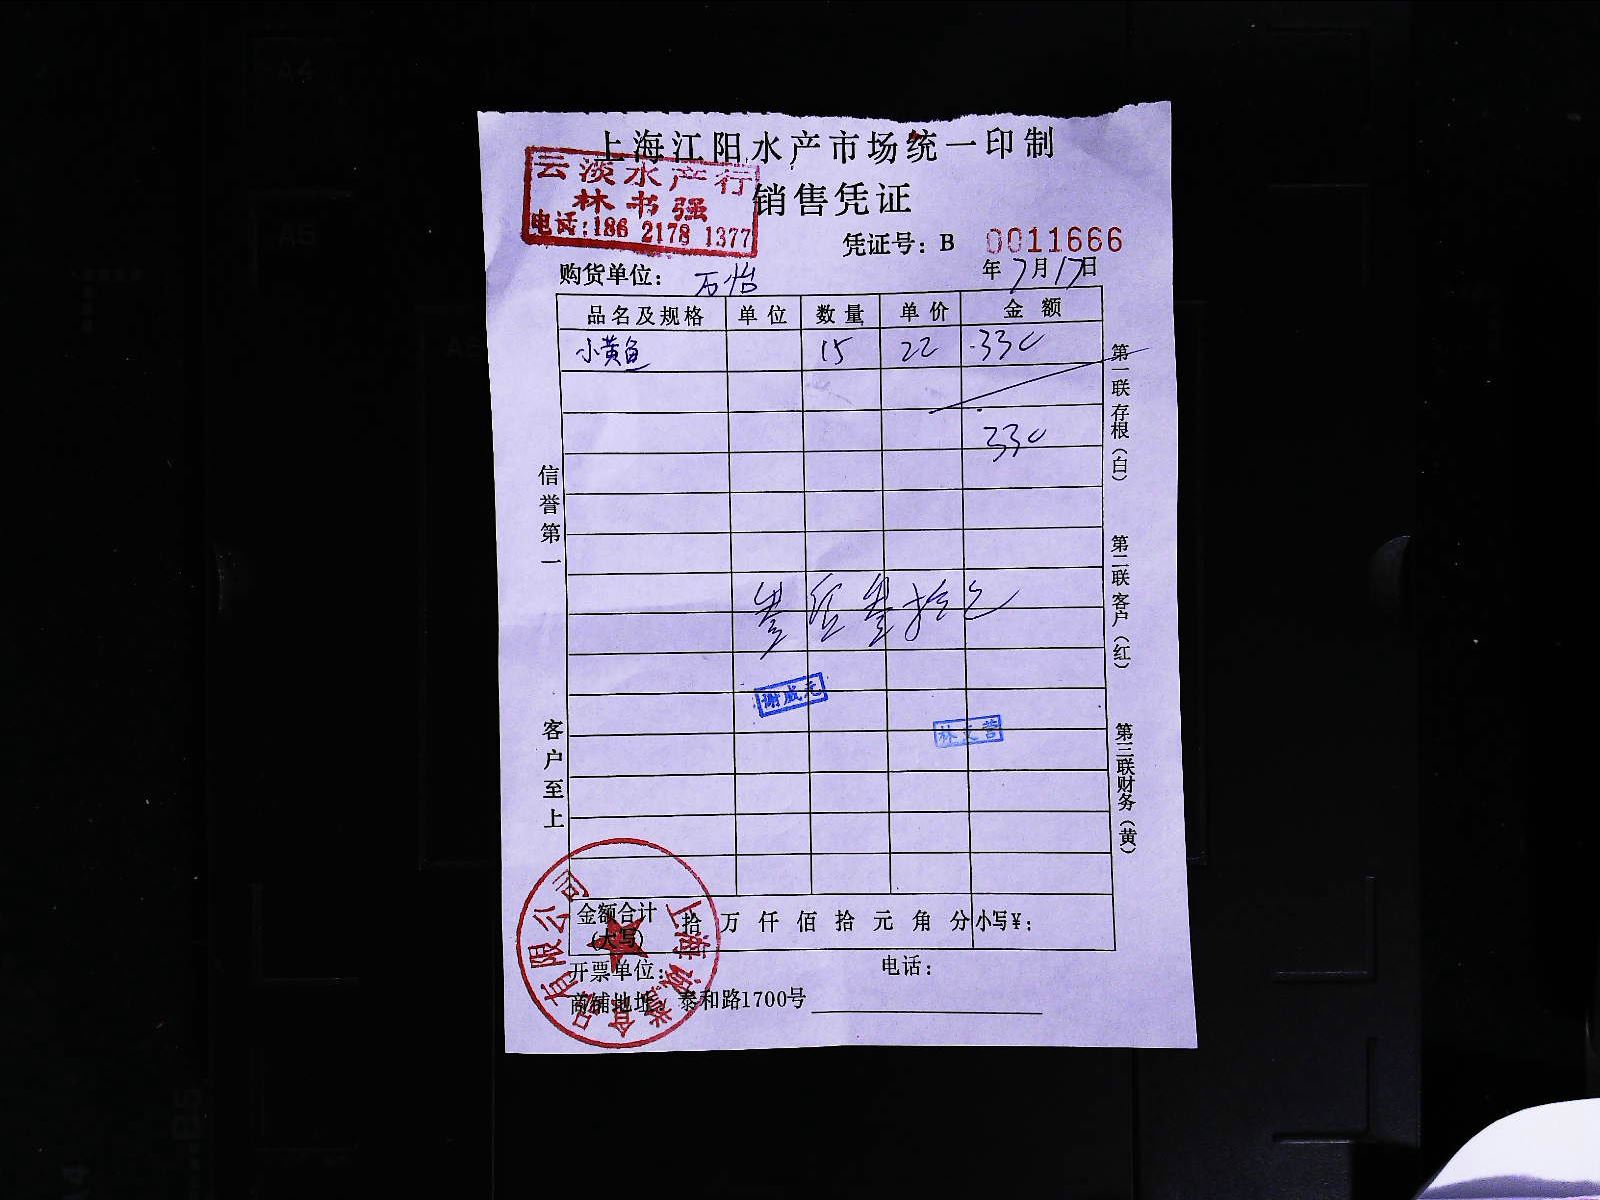 上海江阳水产市场统一印制
云淡水产行
林书强
电话:186 2178 1377
销售凭证
凭证号: B 0011666
购货单位: 万怡
年7月17日
品名及规格 单位 数量 单价 金额
小黄鱼 15 22 330
330
叁佰叁拾元
谢成元
林文营
信誉第一
客户至上
第一联存根(白)
第二联客户(红)
第三联财务(黄)
金额合计(大写) 拾 万 仟 佰 拾 元 角 分 小写¥:
开票单位: 电话:
商铺地址: 泰和路1700号
上海诚誉食品有限公司
A4
A5
A5
B5
A4